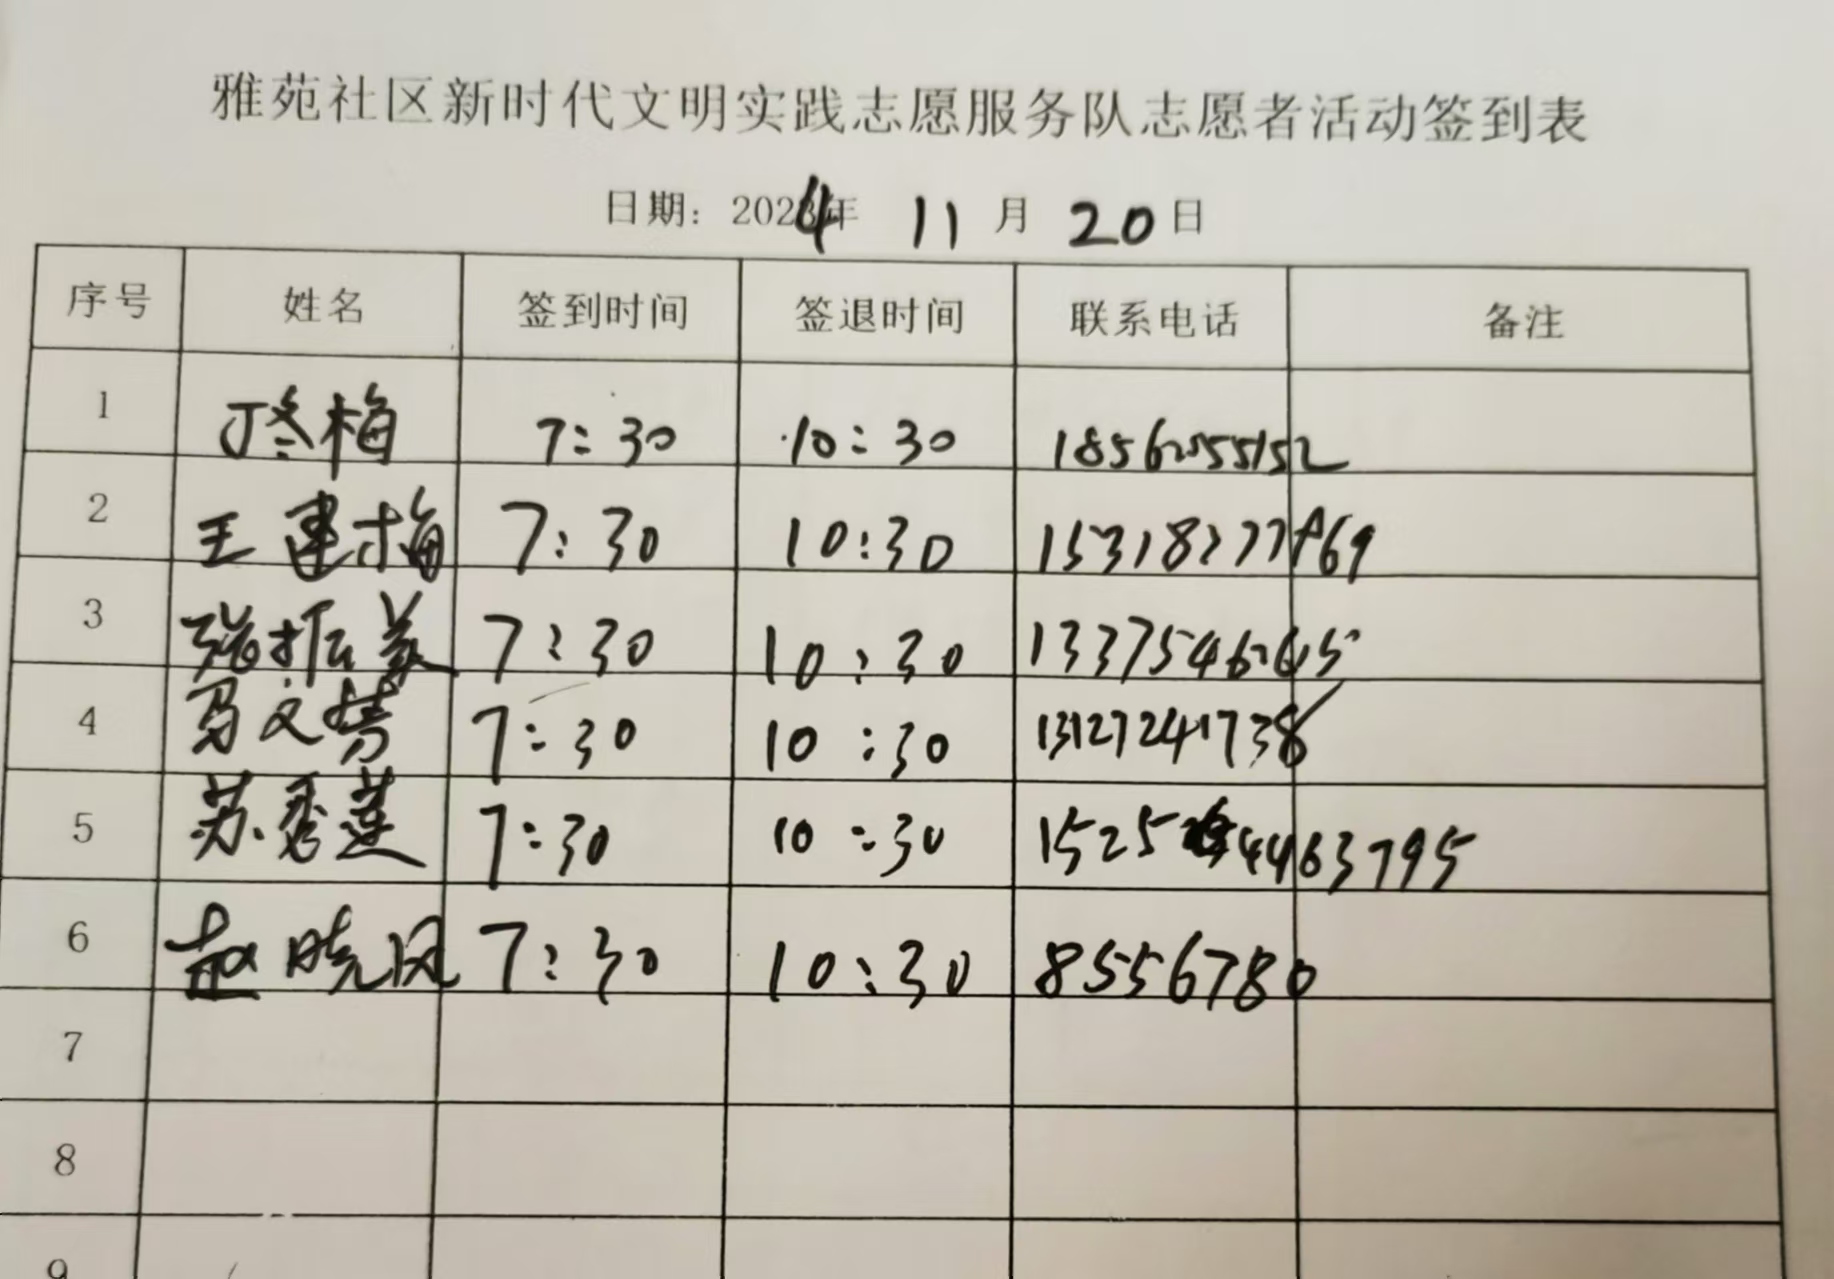 雅苑社区新时代文明实践志愿服务队志愿者活动签到表
日期：2024年 11 月 20 日
序号 姓名 签到时间 签退时间 联系电话 备注
1 丁冬梅 7:30 10:30 18562555152
2 王建梅 7:30 10:30
3 张振美 7:30 10:30
4 马文 7:30 10:30 13127241738
5 苏秀莲 7:30 10:30
6 赵晓风 7:30 10:30 8556780
7
8
9